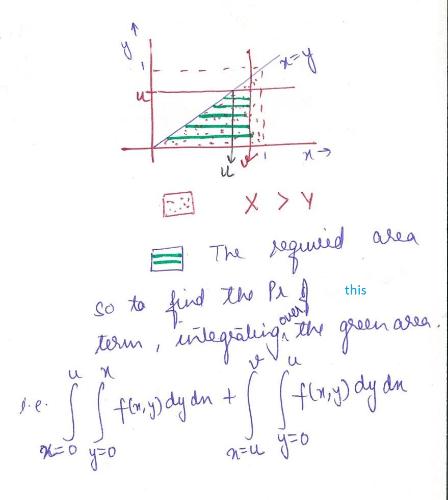 y ↑
1
x=y
u
x →
u
v
1
X > Y
The required area
so to find the Pr of this
term, integrating over the green area.
i.e. ∫_{x=0}^{u} ∫_{y=0}^{x} f(x,y) dy dx + ∫_{x=u}^{v} ∫_{y=0}^{u} f(x,y) dy dx